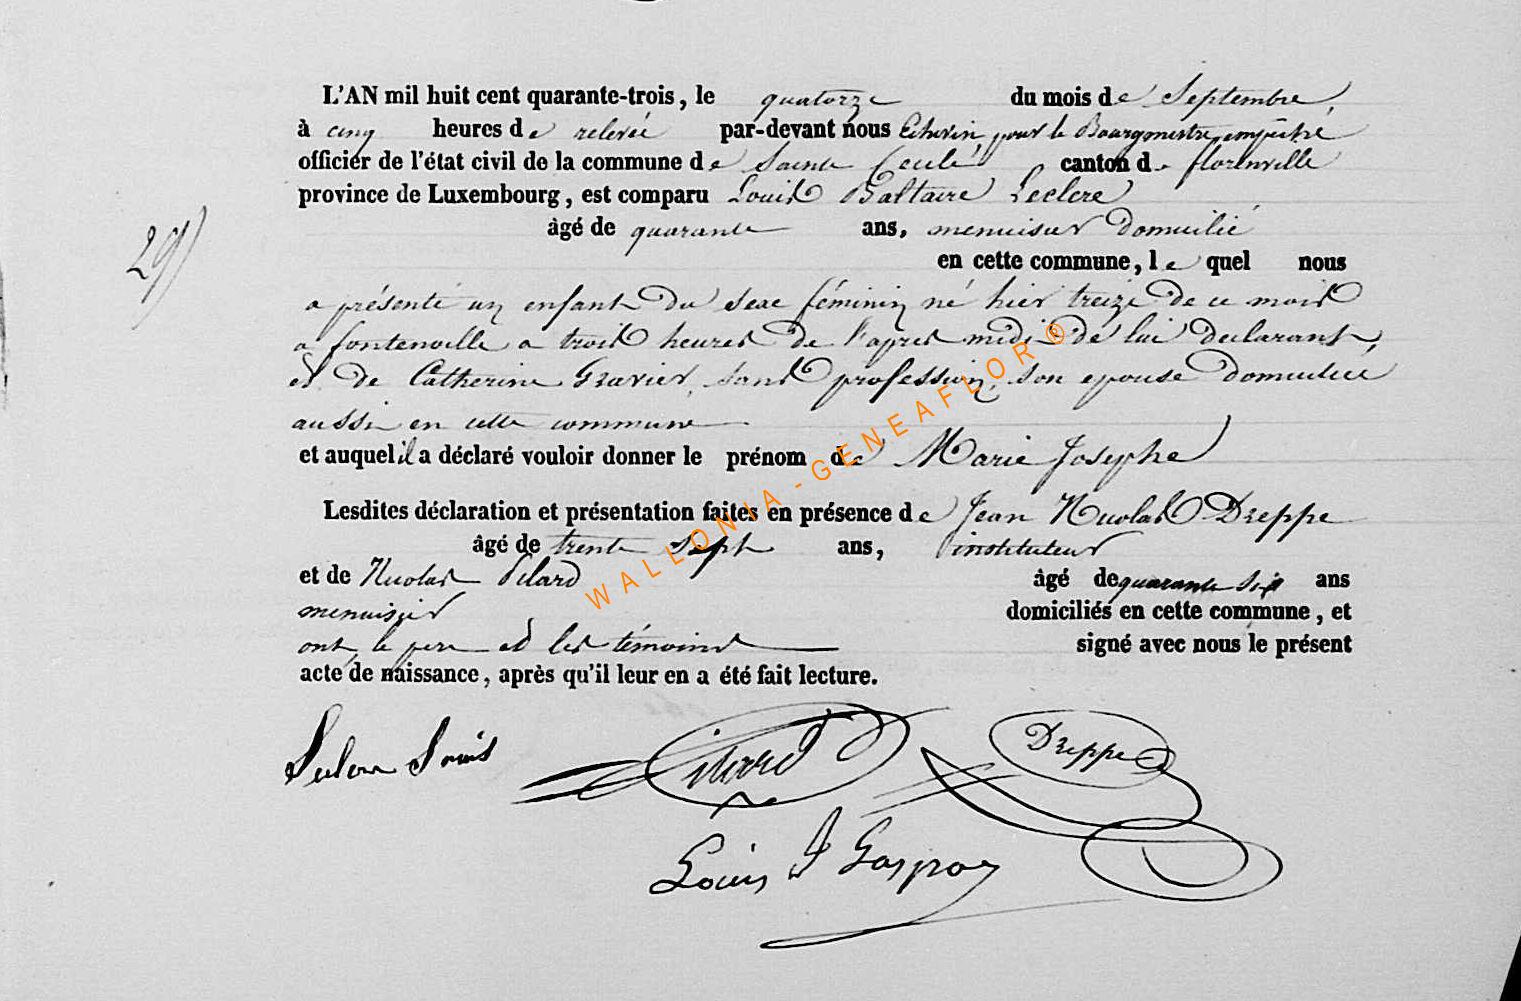 L'AN mil huit cent quarante-trois, le quatorze du mois de Septembre,
à cinq heures de relevée par-devant nous Echevin, pour le Bourgmestre empêché
officier de l'état civil de la commune de Sainte Cecile canton de florenville
province de Luxembourg, est comparu Louis Baltaire Leclere
âgé de quarante ans, menuisier domicilié
en cette commune, le quel nous
29)
a présenté un enfant du sexe féminin né hier treize de ce mois
a fontenoille a trois heures de l'apres midi de lui declarant,
et de Catherine Gravier, sans profession, son epouse domiciliee
aussi en cette commune
et auquel il a déclaré vouloir donner le prénom de Marie Josephe
Lesdites déclaration et présentation faites en présence de Jean Nicolas Dreppe
âgé de trente sept ans, instituteur
et de Nicolas Pilard âgé de quarante six ans
menuisier domiciliés en cette commune, et
ont le pere et les témoins signé avec nous le présent
acte de naissance, après qu'il leur en a été fait lecture.
Louis Dreppe
Louis J
WALLONIA-GENEAFLOR®